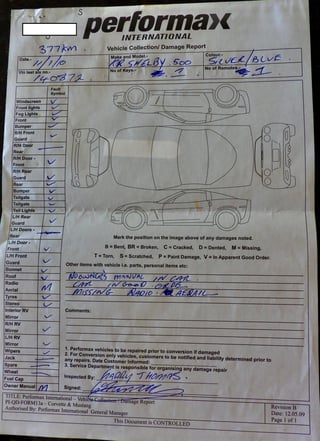 S
performax
INTERNATIONAL
377km.
Vehicle Collection/ Damage Report
Date: 11/1/10 Make and Model: KR SHELBY 500 Colour: SILVER/BLUE.
Vin last six no.: 140872 No of Keys: 1 No of Remotes: 1
Fault
Symbol
Windscreen
Front lights
Fog Lights
Front
Bumper
R/H Front
Guard
R/H Door
Rear
R/H Door -
Front
R/H Rear
Guard
Rear
Bumper
Tailgate
Tailgate
Tail Lights
L/H Rear
Guard
L/H Doors -
Rear
L/H Door -
Front
L/H Front
Guard
Bonnet
Roof
Radio
Aerial M
Tyres
Stereo
Interior RV
Mirror
R/H RV
Mirror
L/H RV
Mirror
Wipers
Jack
Spare
Wheel
Fuel Cap
Owner Manual M
Mark the position on the image above of any damages noted.
B = Bent, BR = Broken, C = Cracked, D = Dented, M = Missing,
T = Torn, S = Scratched, P = Paint Damage, V = in Apparent Good Order.
Other items with vehicle i.e. parts, personal items etc:
MANUAL IN CAR
CAR IN GOOD
MISSING RADIO AERAIL
Comments:
1. Performax vehicles to be repaired prior to conversion if damaged
2. For Conversion only vehicles, customers to be notified and liability determined prior to
any repairs. Date Customer informed:
3. Service Department is responsible for organising any damage repair
Inspected By: THOMAS.
Signed:
TITLE: Performax International – Vehicle Collection / Damage Report
PI-QD-FORM13a – Corvette & Mustang
Authorised By: Performax International General Manager
This Document is CONTROLLED
Revision B
Date: 12.05.09
Page 1 of 1